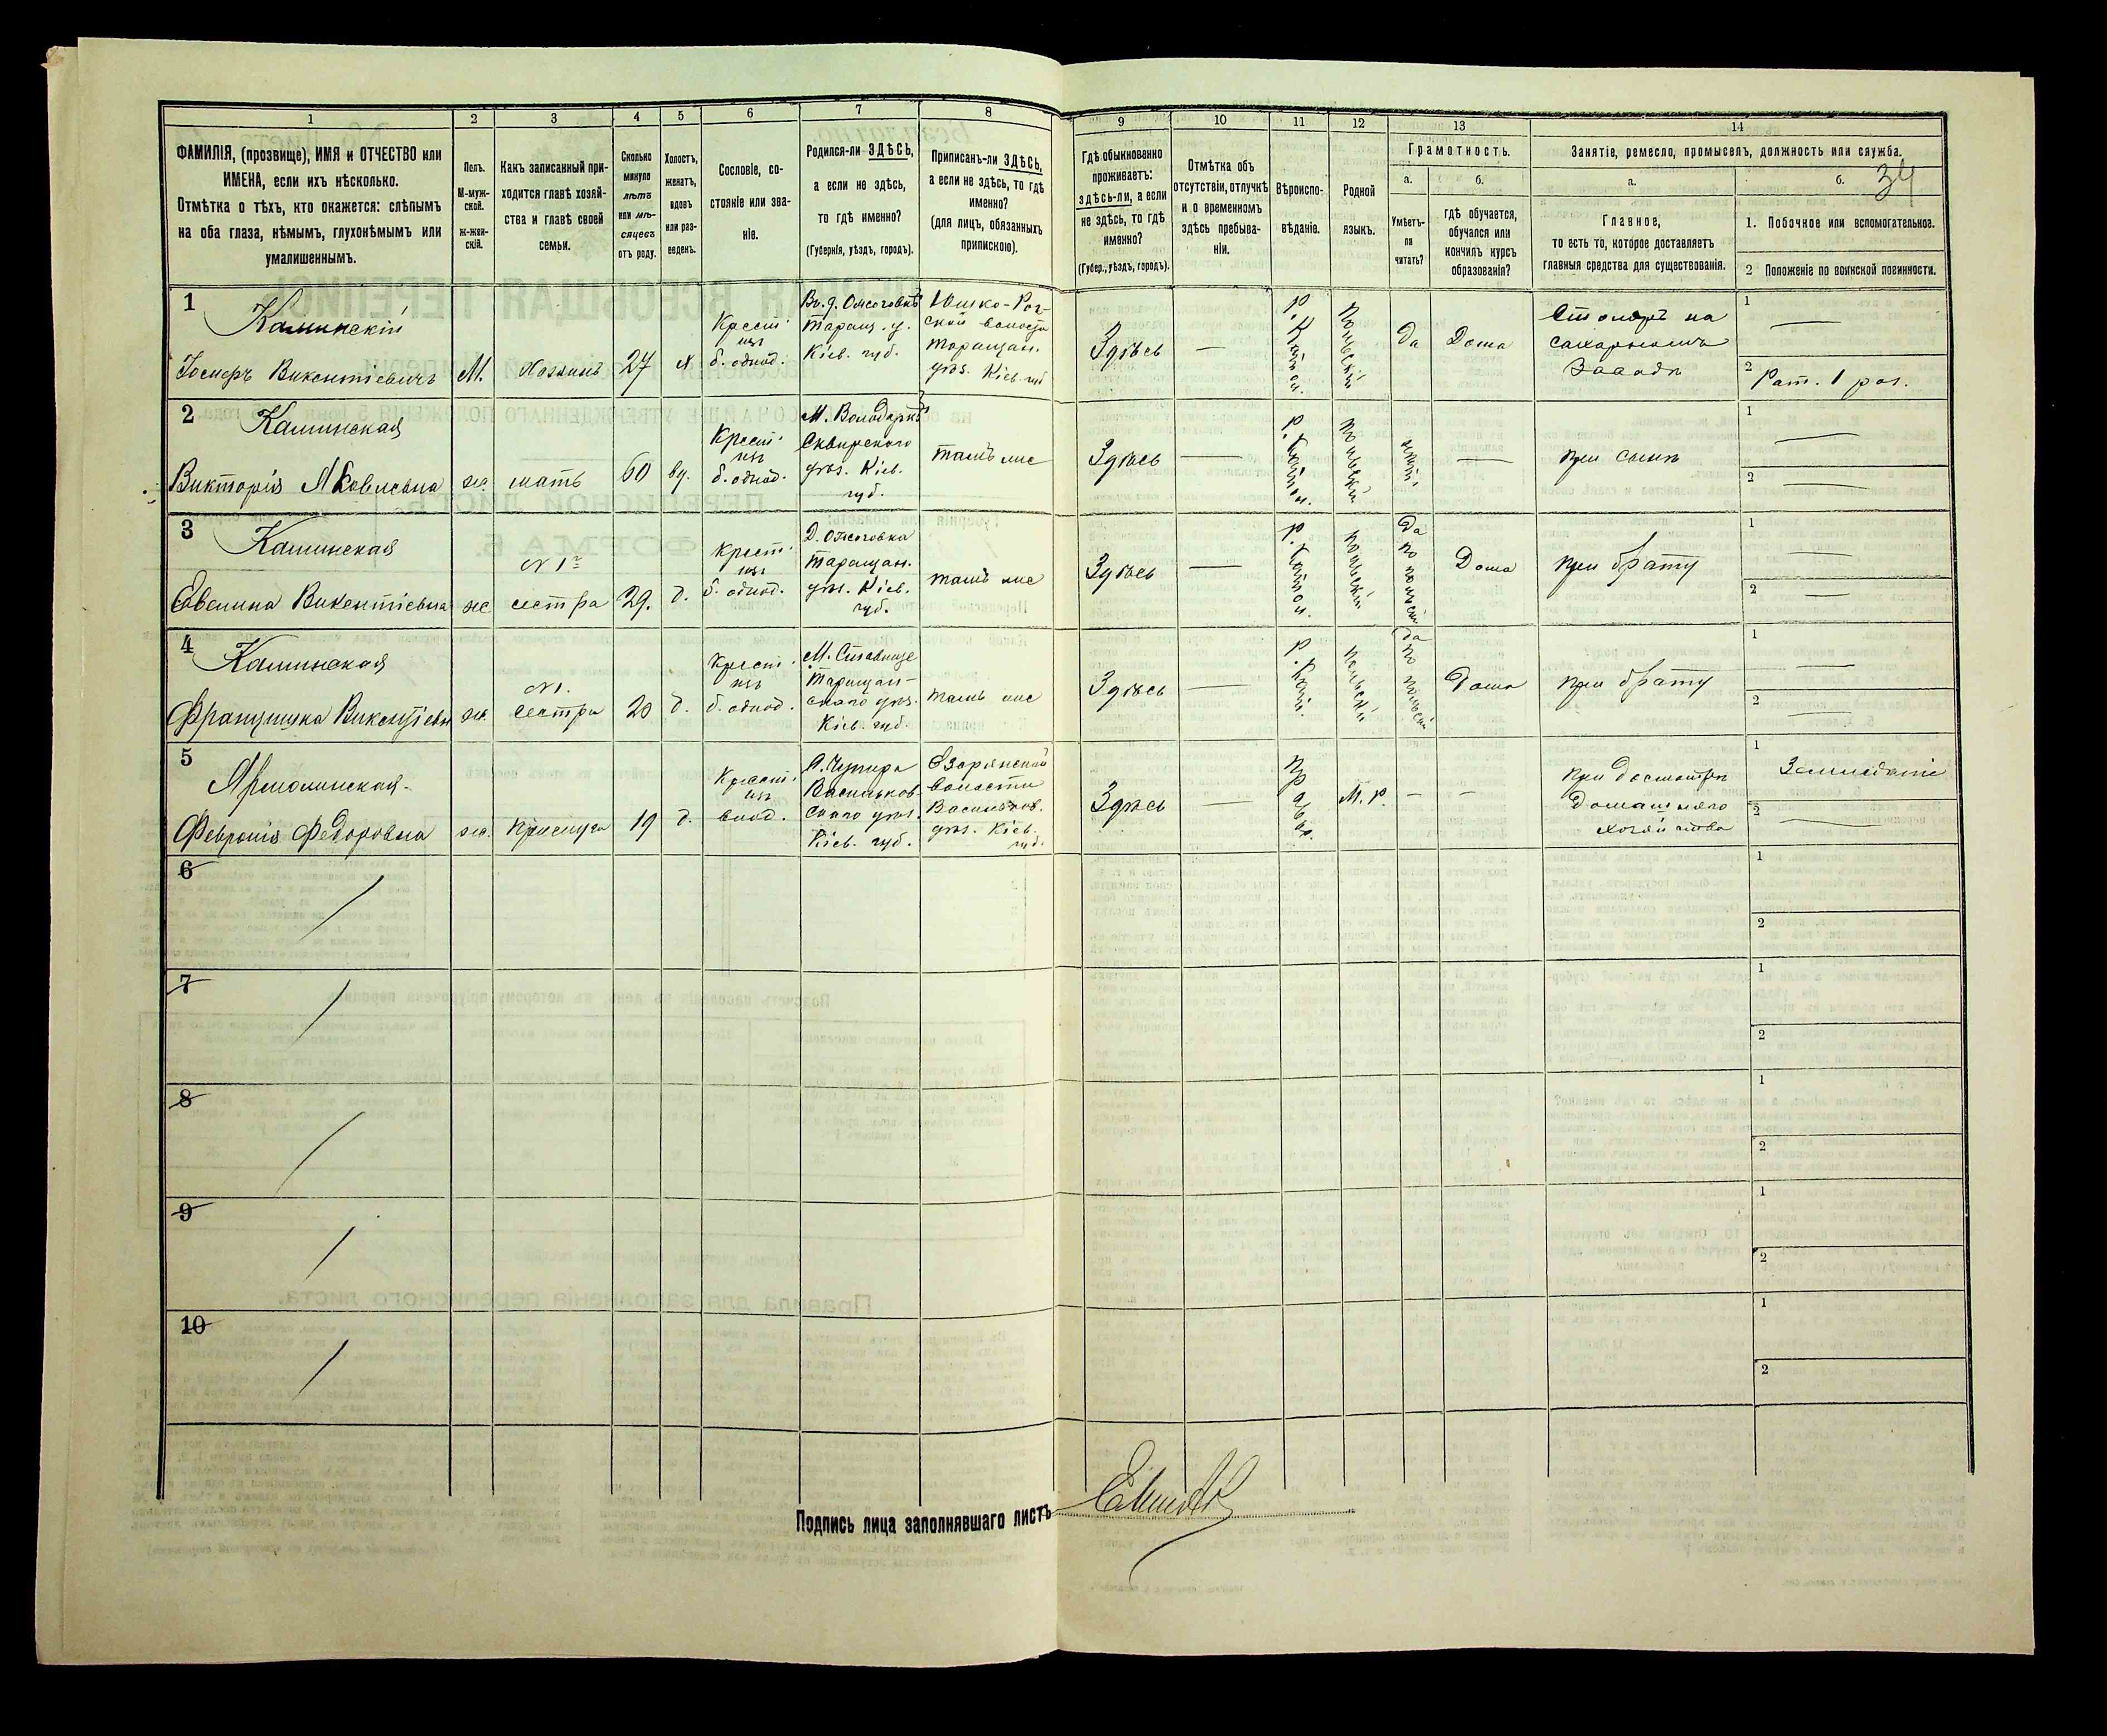 1
2
3
4
5
6
7
8
9
10
11
12
13
14
ФАМИЛІЯ, (прозвище), ИМЯ и ОТЧЕСТВО или
ИМЕНА, если ихъ нѣсколько.
Отмѣтка о тѣхъ, кто окажется: слѣпымъ
на оба глаза, нѣмымъ, глухонѣмымъ или
умалишеннымъ.
Полъ.
М-муж-
ской.
ж-жен-
скій.
Какъ записанный при-
ходится главѣ хозяй-
ства и главѣ своей
семьи.
Сколько
минуло
лѣтъ
или мѣ-
сяцевъ
отъ роду.
Холостъ,
женатъ,
вдовъ
или раз-
веденъ.
Сословіе, со-
стояніе или зва-
ніе.
Родился-ли ЗДѢСЬ,
а если не здѣсь,
то гдѣ именно?
(Губернія, уѣздъ, городъ).
Приписанъ-ли ЗДѢСЬ,
а если не здѣсь, то гдѣ
именно?
(для лицъ, обязанныхъ
припискою).
Гдѣ обыкновенно
проживаетъ:
здѣсь-ли, а если
не здѣсь, то гдѣ
именно?
(Губер., уѣздъ, городъ).
Отмѣтка объ
отсутствіи, отлучкѣ
и о временномъ
здѣсь пребыва-
ніи.
Вѣроиспо-
вѣданіе.
Родной
языкъ.
Грамотность.
а.
Умѣетъ-
ли
читать?
б.
гдѣ обучается,
обучался или
кончилъ курсъ
образованія?
Занятіе, ремесло, промыселъ, должность или служба.
34
а.
Главное,
то есть то, которое доставляетъ
главныя средства для существованія.
б.
1. Побочное или вспомогательное.
2 Положеніе по воинской повинности.
1
Каминскій
Іосифъ Викентіевичъ
М.
Хозяинъ
27
х
Крест.
изъ
б. однод.
Таращ. у.
Кіев. губ.
волости
Таращан.
уѣз. Кіев. губ.
Здѣсь
—
Р. Катол.
Польскій
Да
Дома
Столяръ на
сахарномъ
Заводѣ
1
—
2
Рат. 1 раз.
2
Каминская
Викторія Яковлевна
ж
мать
60
вд.
Крест.
изъ
б. однод.
М. Володарка
Сквирского
уѣз. Кіев.
губ.
тамъ же
Здѣсь
—
Р. Катол.
Польскій
—
при сынѣ
1
—
2
—
3
Каминская
Евелина Викентіевна
ж
№ 1
сестра
29.
д.
Крест.
изъ
б. однод.
Таращан.
уѣз. Кіев.
губ.
тамъ же
Здѣсь
—
Р. Катол.
Польскій
Да по польски
Дома
при брату
1
—
2
—
4
Каминская
ж.
№ 1.
сестра
20
д.
Крест.
изъ
б. однод.
М. Ставище
Таращан-
скаго уѣз.
Кіев. губ.
тамъ же
Здѣсь
—
Р. Катол.
Польскій
да по польски
Дома
при брату
1
—
2
—
5
Февронія Федоровна
ж.
прислуга
19
д.
Крест.
изъ
Васильков-
скаго уѣз.
Кіев. губ.
волости
Васильков.
уѣз. Кіев.
губ.
Здѣсь
—
Прав.
М. Р.
—
—
при досмотрѣ
домашняго
хозяйства
1
Земледѣліе
2
—
6
1
2
7
1
2
8
1
2
9
1
2
10
1
2
Подпись лица заполнявшаго листъ